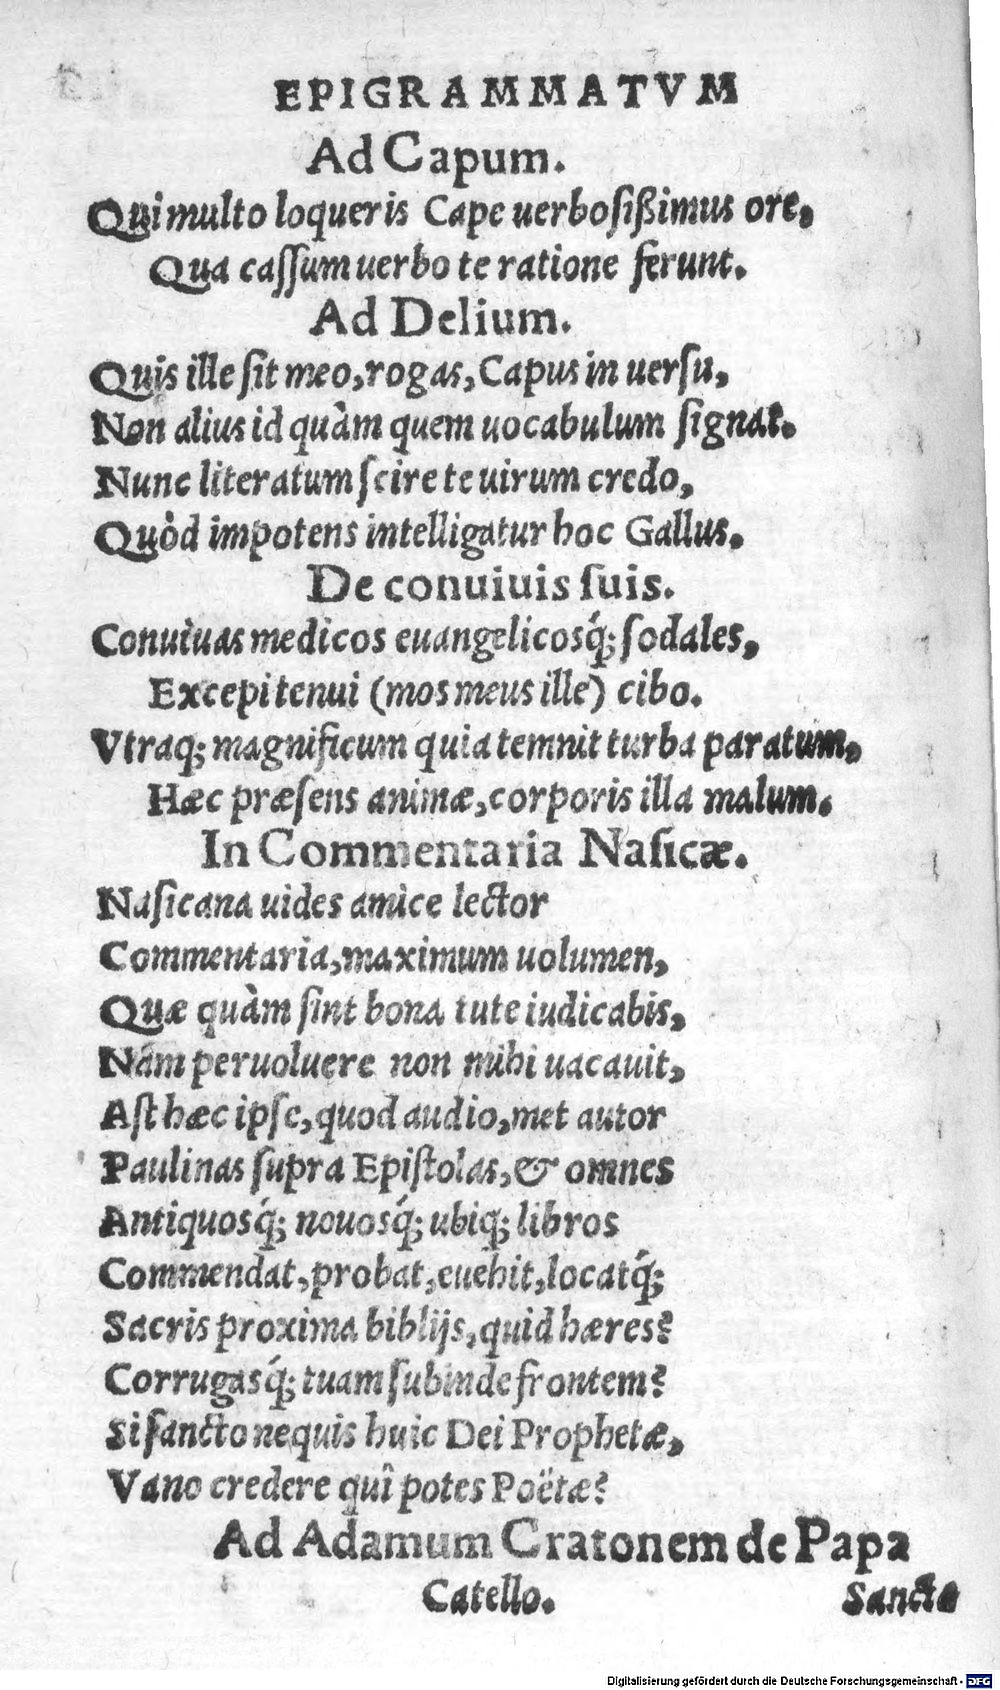 EPIGRAMMATVM
Ad Capum.
Qui multo loqueris Cape uerbosißimus ore,
Qua caſſum uerbo te ratione ferunt.
Ad Delium.
Quis ille ſit meo, rogas, Capus in uerſu,
Non alius id quàm quem uocabulum ſignat.
Nunc literatum ſcire te uirum credo,
Quòd impotens intelligatur hoc Gallus.
De conuiuis ſuis.
Conuiuas medicos euangelicosq́; ſodales,
Excepi tenui (mos meus ille) cibo.
Vtraq; magnificum quia temnit turba paratum,
Hæc præſens animæ, corporis illa malum.
In Commentaria Naſicæ.
Naſicana uides amice lector
Commentaria, maximum uolumen,
Quæ quàm ſint bona tute iudicabis,
Nam peruoluere non mihi uacauit,
Aſt hæc ipſe, quod audio, met autor
Paulinas ſupra Epiſtolas, & omnes
Antiquosq́; nouosq́; ubiq; libros
Commendat, probat, euehit, locatq́;
Sacris proxima biblijs, quid hæres?
Corrugasq́; tuam ſubinde frontem?
Si ſancto nequis huic Dei Prophetæ,
Vano credere quî potes Poëtæ?
Ad Adamum Cratonem de Papa
Catello.
Sancte
Digitalisierung gefördert durch die Deutsche Forschungsgemeinschaft - DFG